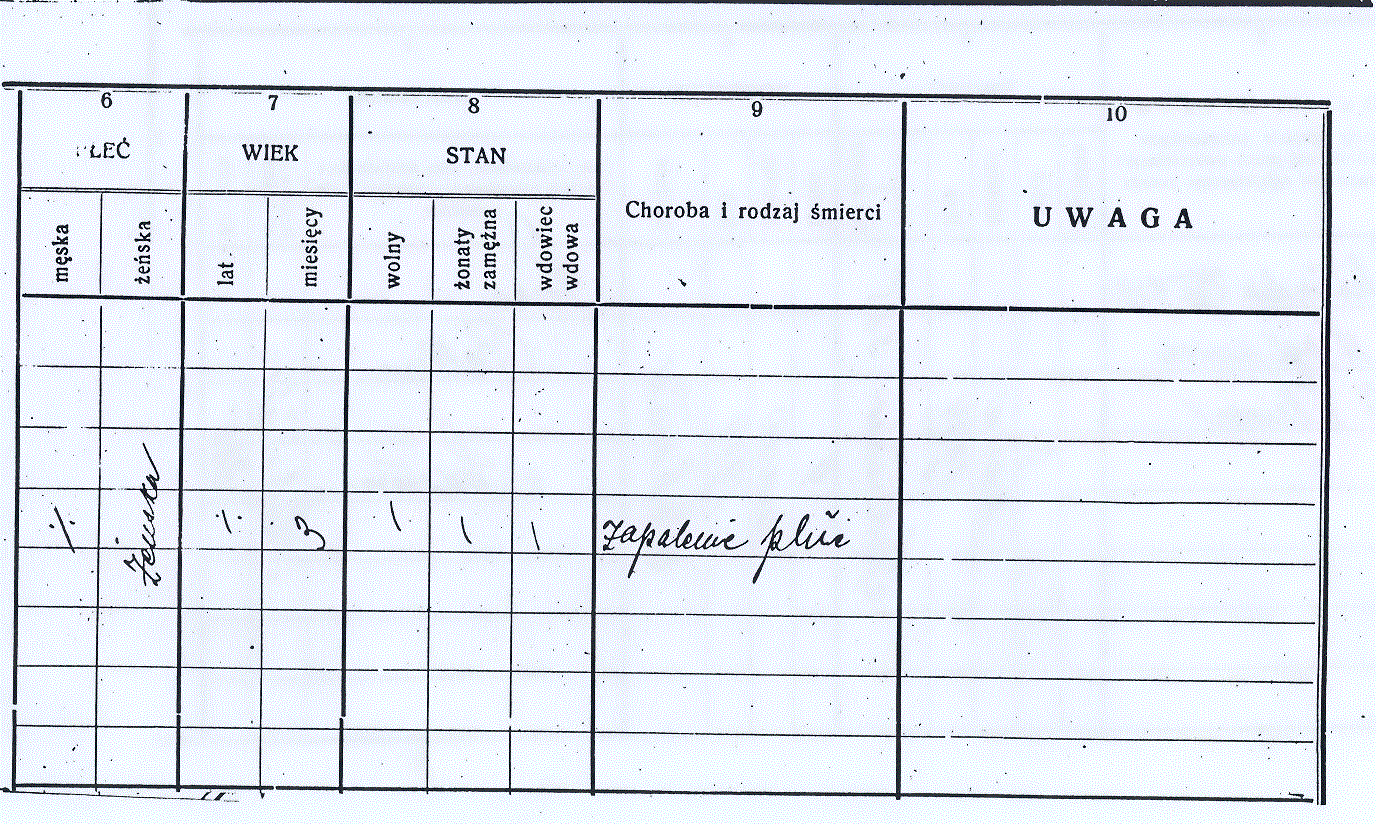 6 7 8 9 10
PŁEĆ WIEK STAN Choroba i rodzaj śmierci UWAGA
męska żeńska lat miesięcy wolny żonaty zamężna wdowiec wdowa
·/· żeńska ·/· 3 \ \ \ Zapalenie płuc